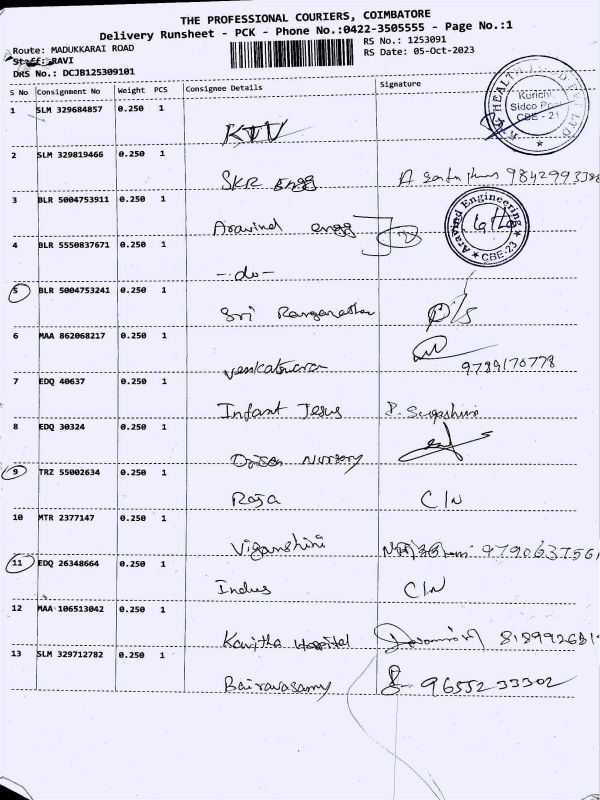 THE PROFESSIONAL COURIERS, COIMBATORE
Delivery Runsheet - PCK - Phone No.:0422-3505555 - Page No.:1
Route: MADUKKARAI ROAD
RS No.: 1253091
Staff: RAVI
RS Date: 05-Oct-2023
DRS No.: DCJB125309101
S No Consignment No Weight PCS Consignee Details Signature
HEALTH
Kurichi
Sidco Post
CBE - 21
1 SLM 329684857 0.250 1
KTV
2 SLM 329819466 0.250 1
SKR Engg
3 BLR 5004753911 0.250 1
Aravind engg
Aravind Engineering
CBE-23
4 BLR 5550837671 0.250 1
-do-
5 BLR 5004753241 0.250 1
Sri Ranganathar P/s
6 MAA 862068217 0.250 1
9789170778
7 EDQ 40637 0.250 1
Infant Jesus
8 EDQ 30324 0.250 1
Nursery
9 TRZ 55002634 0.250 1
Raja C/N
10 MTR 2377147 0.250 1
Viganshini
11 EDQ 26348664 0.250 1
Indus C/N
12 MAA 106513042 0.250 1
Kavitha Hospital
13 SLM 329712782 0.250 1
Bairavasamy 9655233302